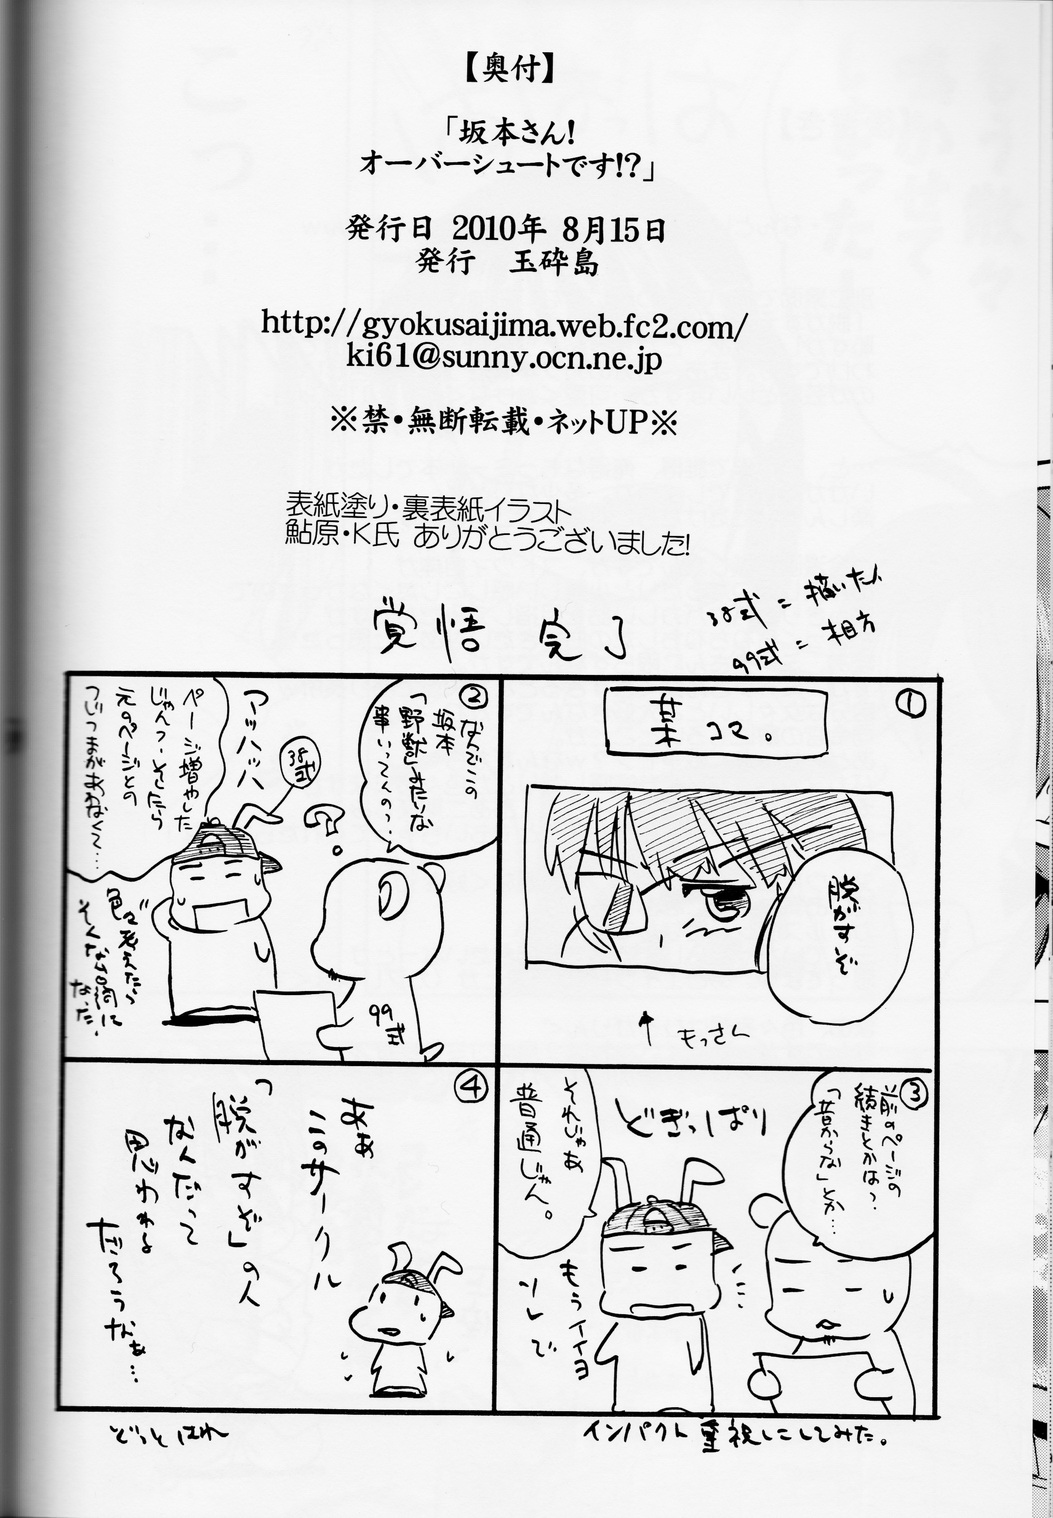 【奥付】
「坂本さん!
オーバーシュートです!?」
発行日 2010年 8月15日
発行 玉砕島
http://gyokusaijima.web.fc2.com/
ki61@sunny.ocn.ne.jp
※禁・無断転載・ネットUP※
表紙塗り・裏表紙イラスト
鮎原・K氏 ありがとうございました!
覚悟 完了
38式=描いた人
99式=相方
①
葉コマ。
脱がすぞ
もっさん
②
なんでこの
坂本
「野獣」みたいな
事いってんの?
?
38式
アッハッハ
ページ増やした
じゃんっ・そしたら
元のページとの
つじつまがあわなくて…
色々考えたら
そんな台詞に
なった。
99式
③
前のページの
続きとかは?
「昔からな」とか…
どぎっぱり
それじゃあ
普通じゃん。
もうイイヨ
ソレで
④
ああ
このサークル
「脱がすぞ」の人
なんだって
思われる
だろうなぁ…
インパクト重視にしてみた。
どっとはれ